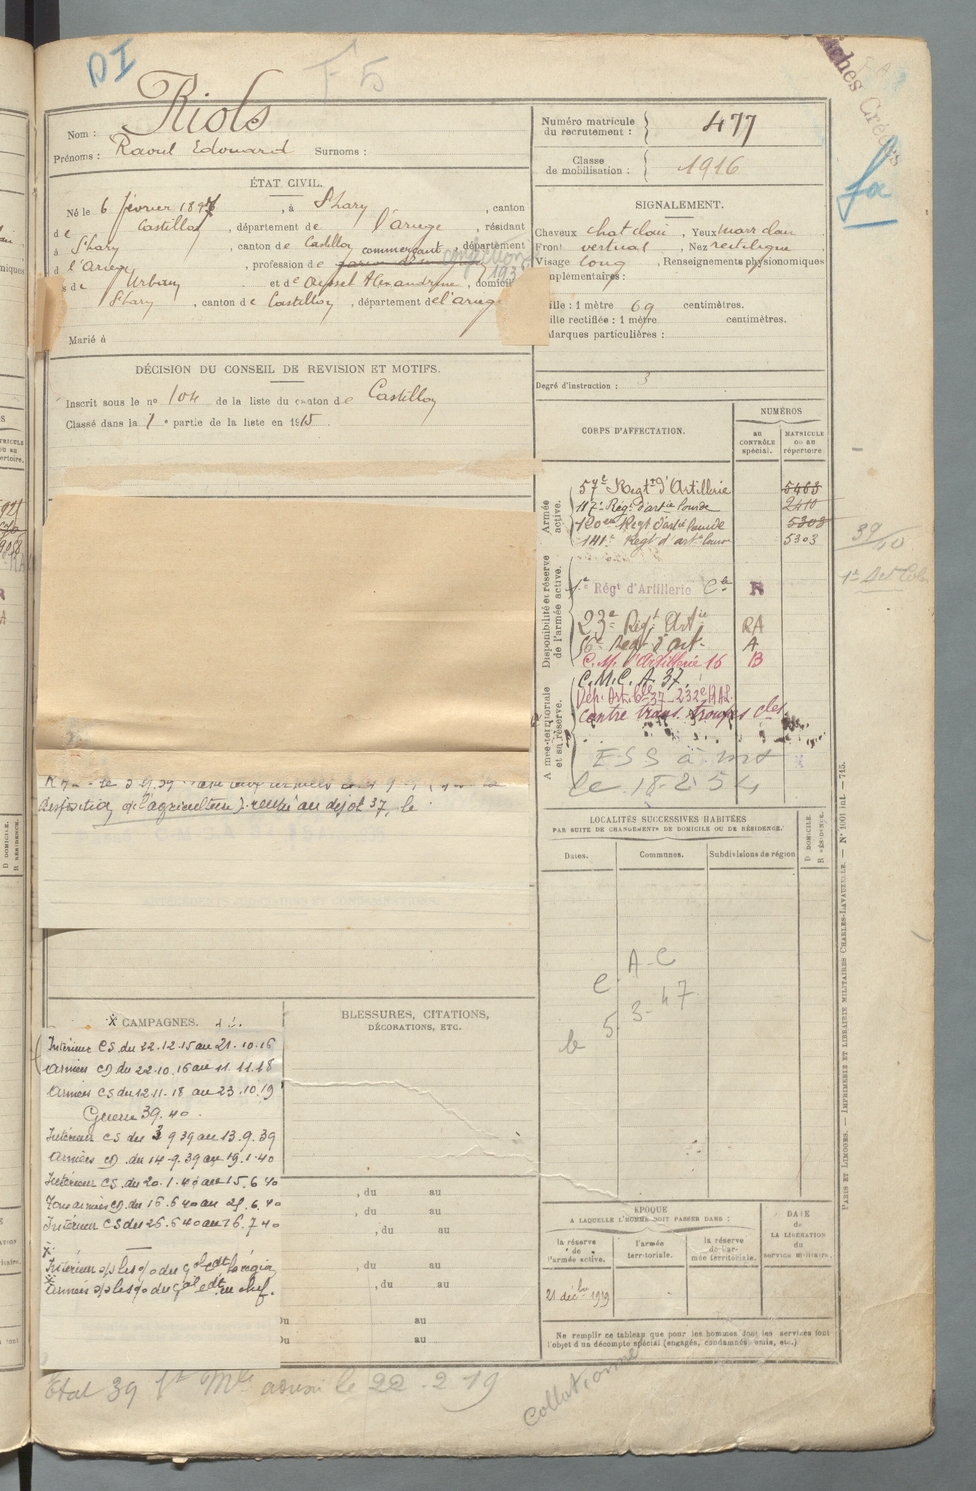 DI
F 5
Riols
Nom :
Prénoms : Raoul Edouard Surnoms :
Numéro matricule du recrutement : 477
Classe de mobilisation : 1916
ÉTAT CIVIL.
Né le 6 février 1897, à S'hary, canton
de Castillon, département de l'ariege, résidant
à S'hary, canton de Castillon, département
d l'Ariege, profession de commerçant
s de Urbain et de Aysset Alexandrine, domicili
S'hary, canton de Castillon, département de l'ariege
Marié à
SIGNALEMENT.
Cheveux chat clair, Yeux marr clair
Front vertical, Nez rectiligne
Visage long, Renseignements physionomiques
complémentaires :
Taille : 1 mètre 69 centimètres.
Taille rectifiée : 1 mètre centimètres.
Marques particulières :
Degré d'instruction : 3
DÉCISION DU CONSEIL DE REVISION ET MOTIFS.
Inscrit sous le no 104 de la liste du canton de Castillon
Classé dans la 1e partie de la liste en 1915
CORPS D'AFFECTATION.
NUMÉROS
AU CONTRÔLE spécial.
MATRICULE ou au répertoire.
Armée active.
57e Regt d'Artillerie 5463
117e Régt d'artie lourde 2410
120eme Regt d'artie lourde 5303
141e Regt d'arte lourde 5303
Disponibilité et réserve de l'armée active.
1er Régt d'Artillerie Cle R
23e Régt Artie RA
56e Regt d'art. A
C.M. d'Artillerie 16 B
Armée territoriale et sa réserve.
C.M.C.A. 37.
Dép. Art. 37 - 232e RAL
Centre trans. troupes cles
ESS à
le 18-2 54
39/40
1er Det Col
disposition de l'agriculture) rentré au dépôt 37, le
LOCALITÉS SUCCESSIVES HABITÉES
PAR SUITE DE CHANGEMENTS DE DOMICILE OU DE RÉSIDENCE.
Dates.
Communes.
Subdivisions de région
D DOMICILE.
R RÉSIDENCE.
A-C
le 5 3-47
CAMPAGNES.
Intérieur CS du 22.12.15 au 21.10.16
Armées CD du 22.10.16 au 11.11.18
Armées CS du 12.11.18 au 23.10.19
Guerre 39.40.
Intérieur CS du 3 9 39 au 13.9.39
Armées CD du 14-9.39 au 19.1.40
Intérieur CS du 20.1.40 au 15.6.40
Zone armées CD du 16.6.40 au 25.6.40
Intérieur CS du 26.6.40 au 16.7.40
BLESSURES, CITATIONS,
DÉCORATIONS, ETC.
, du au
, du au
, du au
, du au
, du au
Du au
Du au
ÉPOQUE
A LAQUELLE L'HOMME DOIT PASSER DANS :
la réserve de l'armée active.
l'armée territoriale.
la réserve de l'armée territoriale.
DATE de LA LIBÉRATION du service militaire.
21 decbre 1919
Ne remplir ce tableau que pour les hommes dont les services font
l'objet d'un décompte spécial (engagés, condamnés, omis, etc.)
Etat 39 le 22-2-19
Collationné
PARIS ET LIMOGES. — IMPRIMERIE ET LIBRAIRIE MILITAIRES CHARLES-LAVAUZELLE. — N° 1001 int. — 715.